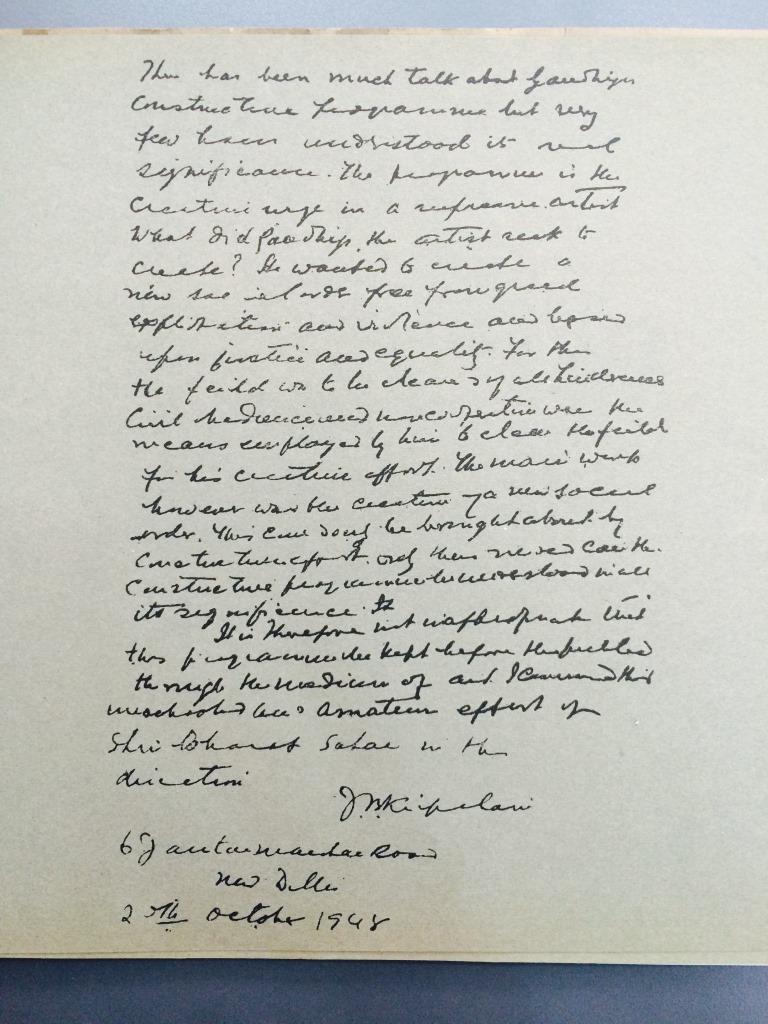 There has been much talk about Gandhijis
Constructive programme but very
few have understood its real
significance. The programme is the
Creative urge in a supreme artist
What did Gandhiji, the artist seek to
create? He wanted to create a
new social order free from greed
exploitation and violence and based
upon justice and equality. For this
the feild was to be cleared of all hindrances
Civil disobedience and noncooperation were the
means employed by him to clear the feild
for his creative effort. The main work
however was the creation of a new social
order. This can only be brought about by
Constructive effort. only thus viewed can the
Constructive programme be understood in all
its significance. It
It is therefore not inappropriate that
this programme be kept before the public
through the medium of art. I commend this
unschooled and amateur effort of
Shri Bharat in the
direction
J B Kripalani
6 Jantar Mantar Road
New Delhi
October 1948